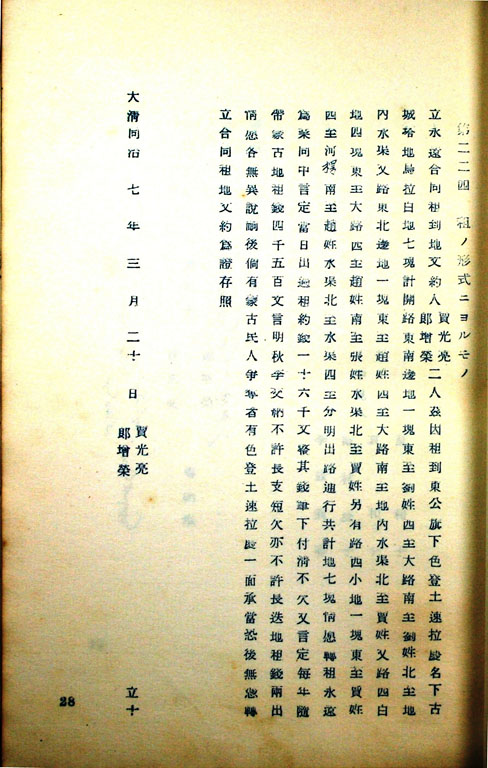 第二二四 租ノ形式ニヨルモノ
立永遠合同租到地文約人賈光亮郎增榮二人玆因租到東公旗下色登土速拉處名下古
城塔地烏拉白地七塊計開路東南邊地一塊東至劉姓西至大路南至劉姓北至地
內水渠又路東北邊地一塊東至趙姓西至大路南至地內水渠北至賈姓又路西白
地四塊東至大路西至趙姓南至張姓水渠北至賈姓另有路西小地一塊東至賈姓
西至河 南至趙姓水渠北至水渠四至分明出路通行共計地七塊情愿轉租永遠
爲業同中言定當日出過租約錢一十六千文整其錢筆下付淸不欠又言定每年隨
帶蒙古地租錢四千五百文言明秋季交納不許長支短欠亦不許長迭地租錢兩出
情愿各無異說嗣後倘有蒙古民人爭奪者有色登土速拉處一面承當恐後無憑轉
立合同租地文約爲證存照
大淸同治七年三月二十日 賈光亮郎增榮 立十
28